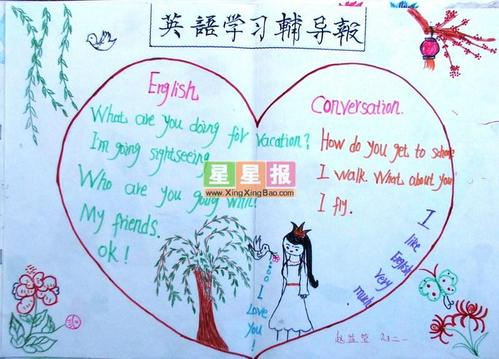 英語学习輔导報
English
What are you doing for vacation?
I'm going sightseeing
Who are you going with?
My friends.
ok!
Conversation.
How do you get to school
I walk. What about you
I fly.
I like English very much
I Love you!
星星报
www.XingXingBao.com